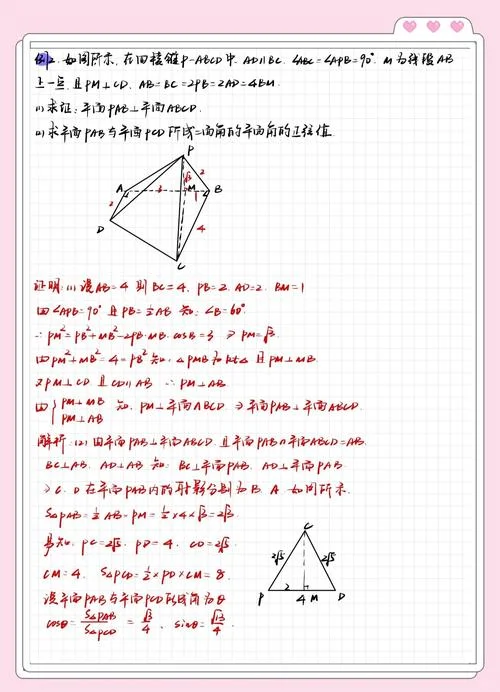 例2. 如图所示, 在四棱锥P-ABCD中. AD∥BC. ∠ABC=∠APB=90°. M为线段AB
上一点. 且PM⊥CD. AB=BC=2PB=2AD=4BM.
(1) 求证: 平面PAB⊥平面ABCD.
(2) 求平面PAB与平面PCD所成二面角的平面角的正弦值.
P
√3
2
A
3
M
B
2
1
D
4
C
证明: (1) 设AB=4 则BC=4. PB=2. AD=2. BM=1
由∠APB=90° 且PB=½AB 知: ∠B=60°
∴PM²=PB²+MB²-2PB·MB·cosB=3 ⇒ PM=√3
由PM²+MB²=4=PB² 知, △PMB为Rt△ 且PM⊥MB
又PM⊥CD 且CD∥AB ∴PM⊥AB
由{PM⊥MB
PM⊥AB 知, PM⊥平面ABCD ⇒平面PAB⊥平面ABCD.
解析: (2) 由平面PAB⊥平面ABCD. 且平面PAB∩平面ABCD=AB.
BC⊥AB. AD⊥AB 知: BC⊥平面PAB. AD⊥平面PAB.
⇒ C. D在平面PAB内的射影分别为B. A 如图所示.
S△PAB=½AB·PM=½×4×√3=2√3
易知, PC=2√5 PD=4. CD=2√5
CM=4. S△PCD=½×PD×CM=8.
设平面PAB与平面PCD所成角为θ
cosθ=S△PAB/S△PCD=√3/4. sinθ=√13/4.
C
2√5
2√5
2
P
4
M
D